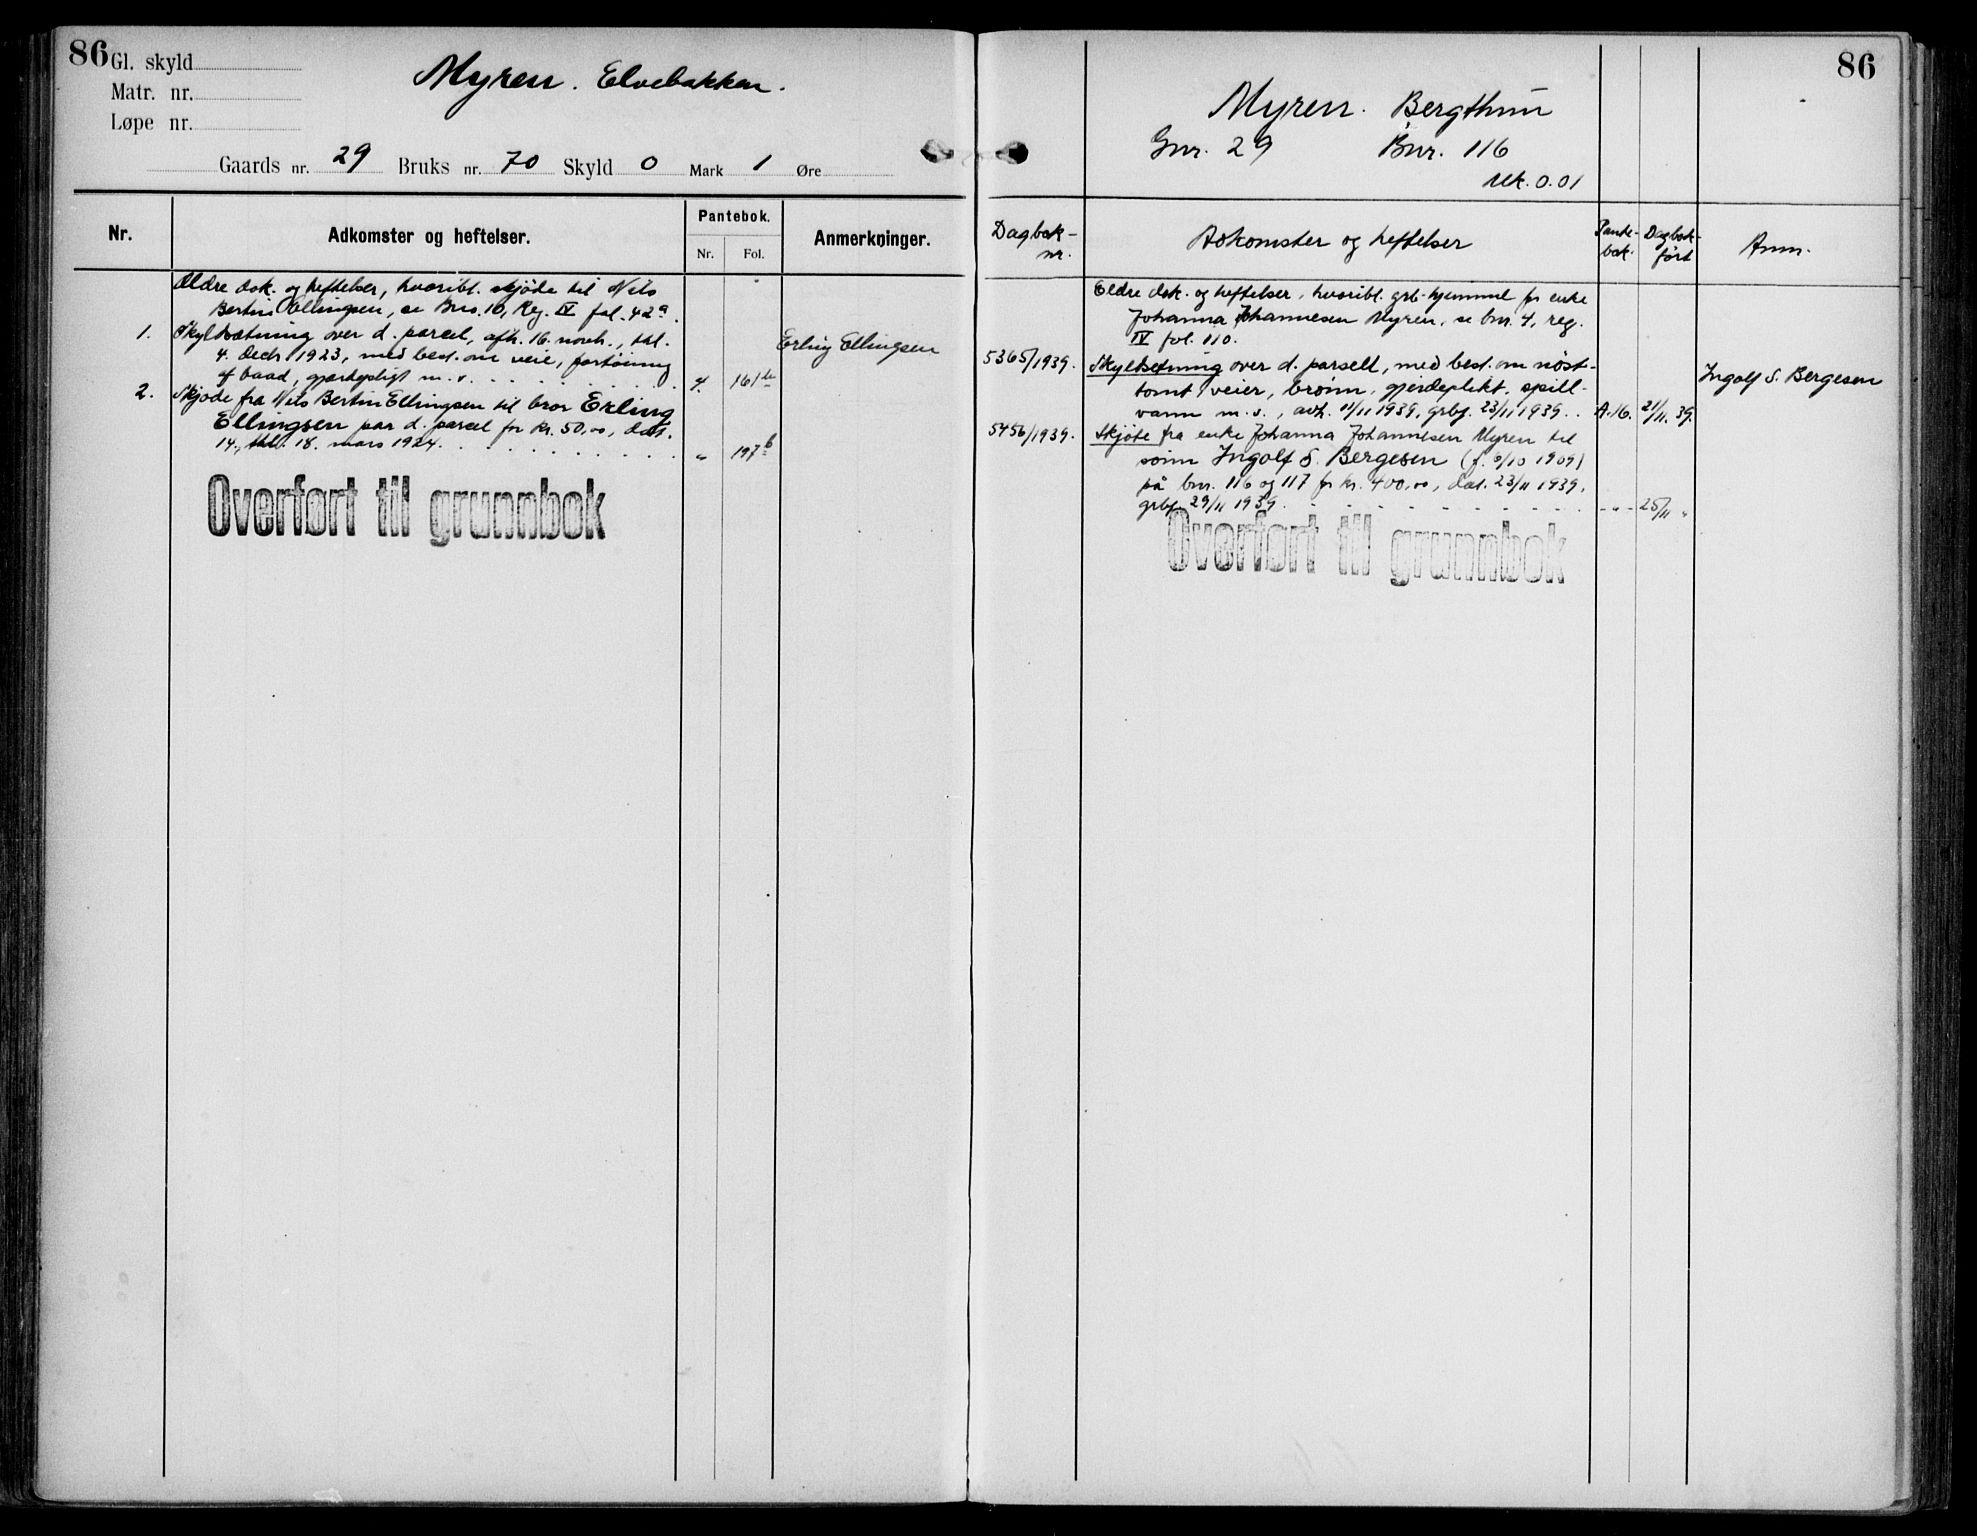 86
Gl. skyld
Matr. nr.
Løpe nr.
Myren. Elvebakken.
Gaards nr. 29 Bruks nr. 70 Skyld 0 Mark 1 Øre
Nr.
Adkomster og heftelser.
Pantebok.
Nr. Fol.
Anmerkninger.
Ældre dok. og heftelser, hvoribl. skjøde til Nils
Bertin Ellingsen, se Brno. 10, Reg. IV fol. 42a.
1. Skyldsætning over d. parcel, afh. 16. novbr., thl.
4. decbr. 1923, med best. om veie, fortøining
af baad, gjærdepligt m. v. 4 161b
Erling Ellingsen
2. Skjøde fra Nils Bertin Ellingsen til bror Erling
Ellingsen paa d. parcel for kr. 50,00, dat.
14., thl. 18. mars 1924. " 197b
Overført til grunnbok
86
Myren. Bergthun
Gnr. 29 Bnr. 116
Mk. 0.01
Dagbok-
nr.
Adkomster og heftelser
Pante-
bok.
Dagbok-
ført
Anm.
Eldre dok. og heftelser, hvoribl. grb-hjemmel for enke
Johanna Johannesen Myren, se bnr. 4, reg.
IV fol. 110.
5365/1939. Skyldsetning over d. parsell, med best. om nøst-
tomt, veier, brønn, gjerdeplikt, spill-
vann m. v., avh. 11/11 1939, grbf. 23/11 1939. A. 16. 21/11. 39.
Ingolf S. Bergesen
5456/1939. Skjøte fra enke Johanna Johannesen Myren til
sønn Ingolf S. Bergesen (f. 9/10 1909)
på bnr. 116 og 117 for kr. 400,00, dat. 23/11 1939,
grbf. 29/11 1939. - " - 25/11 "
Overført til grunnbok